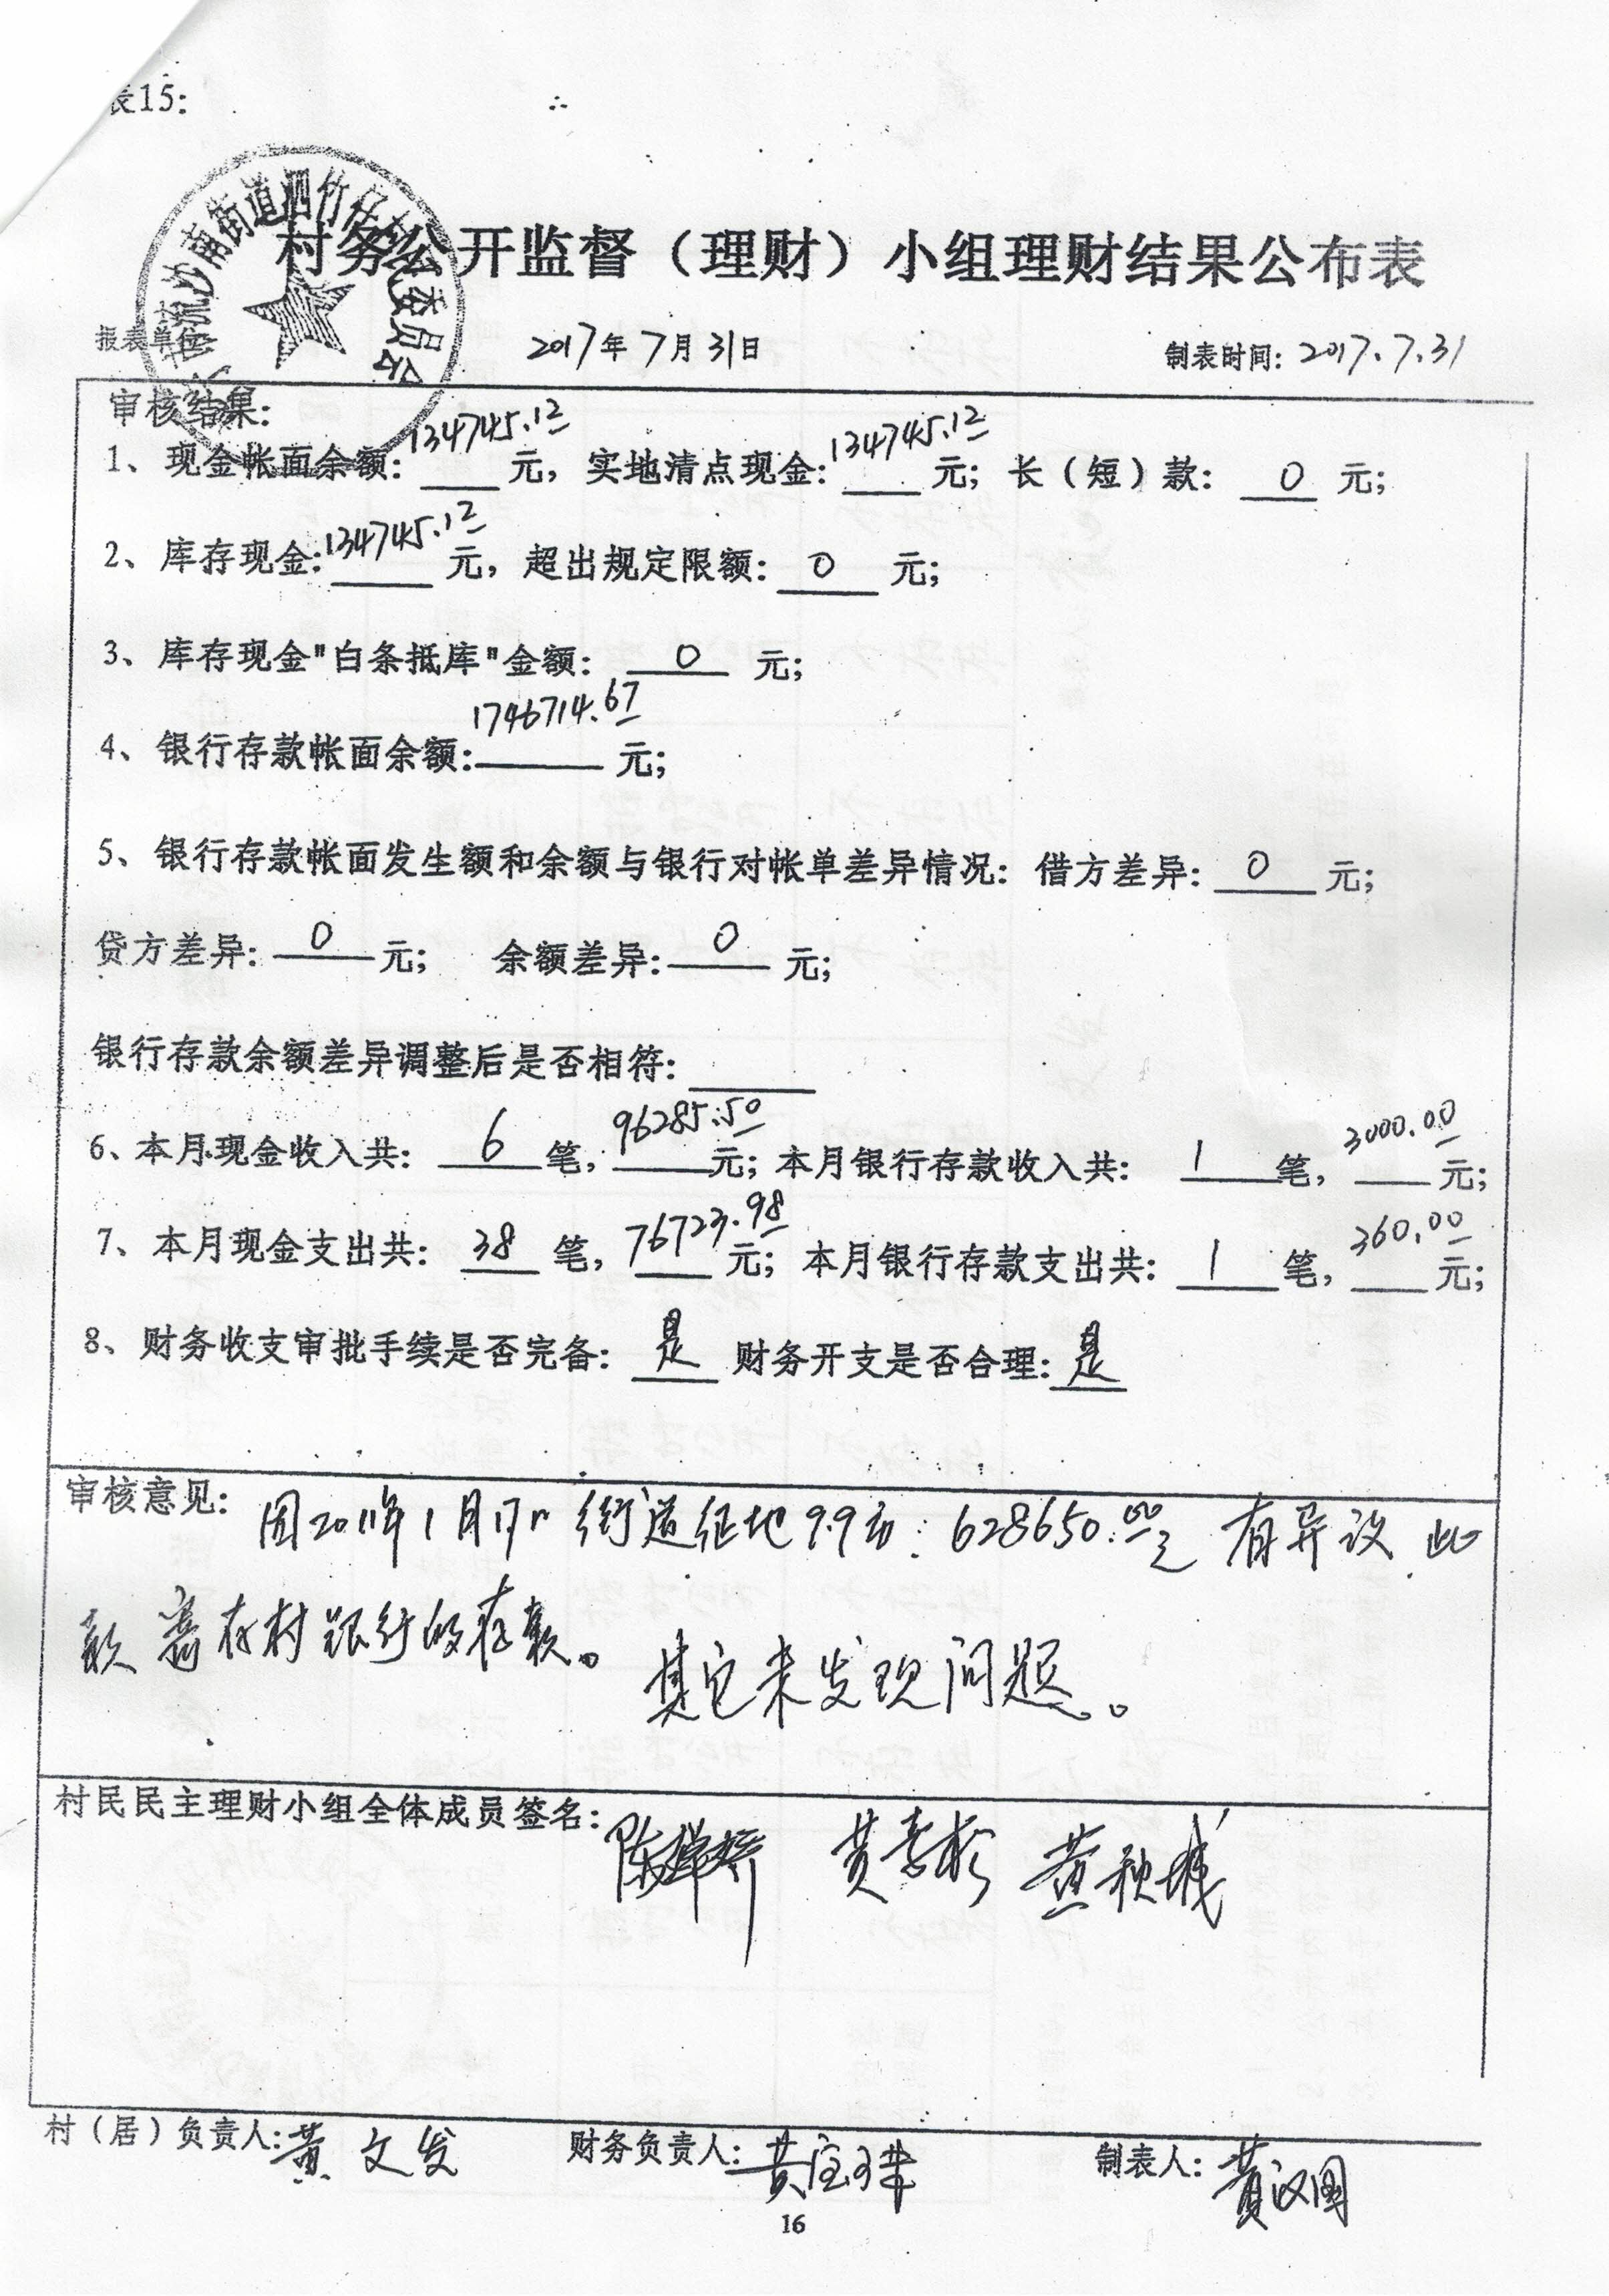 表15:
流沙南街道泗竹仔村民委员会
村务公开监督（理财）小组理财结果公布表
报表单位 2017年7月31日 制表时间: 2017.7.31
审核结果:
1、现金帐面余额: 134745.12 元，实地清点现金: 134745.12 元；长（短）款: 0 元；
2、库存现金: 134745.12 元，超出规定限额: 0 元；
3、库存现金"白条抵库"金额: 0 元；
4、银行存款帐面余额: 1746714.67 元；
5、银行存款帐面发生额和余额与银行对帐单差异情况: 借方差异: 0 元；
贷方差异: 0 元； 余额差异: 0 元；
银行存款余额差异调整后是否相符:
6、本月现金收入共: 6 笔, 96285.50 元；本月银行存款收入共: 1 笔, 3000.00 元；
7、本月现金支出共: 38 笔, 76723.98 元；本月银行存款支出共: 1 笔, 360.00 元；
8、财务收支审批手续是否完备: 是 财务开支是否合理: 是
审核意见: 因2011年1月 街道征地9.9亩: 628650.00元 有异议 此
款 存村银行的存款。 其它未发现问题。
村民民主理财小组全体成员签名: 陈 黄 黄秋城
村（居）负责人: 黄文发 财务负责人: 黄 制表人: 黄汉国
16